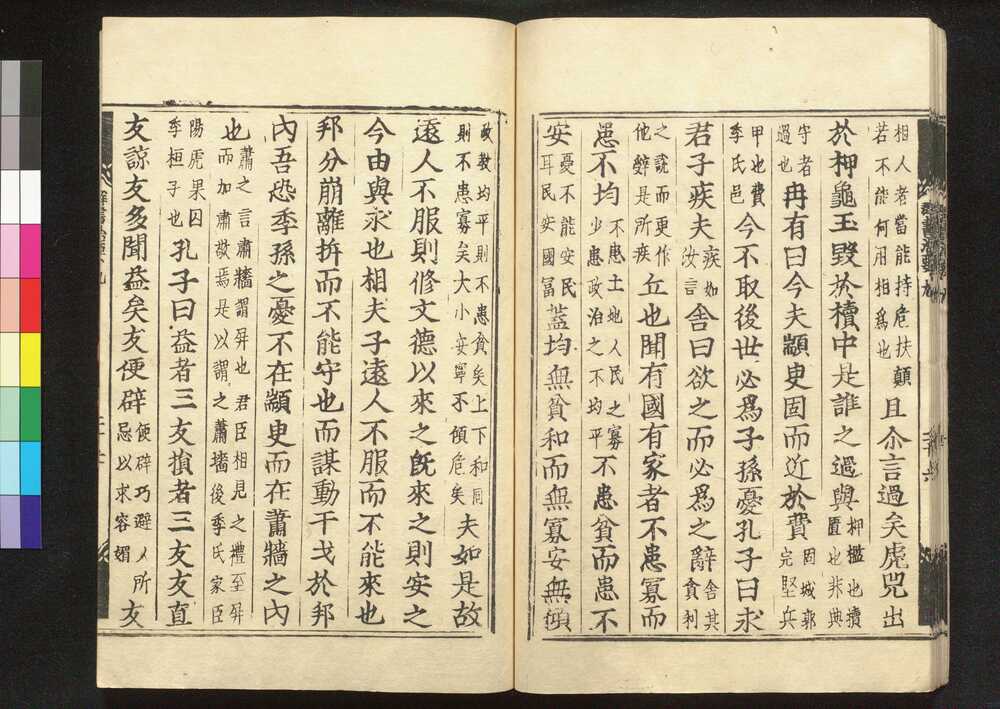 相人者當能持危扶顛
若不能何用相爲也
且尒言過矣虎兕出
於柙龜玉毀於櫝中是誰之過與
柙檻也櫝
匱也非典
守者
過也
冉有曰今夫顓臾固而近於費
固城郭
完堅兵
甲也費
季氏邑
今不取後世必爲子孫憂孔子曰求
君子疾夫
疾如
汝言
舍曰欲之而必爲之辭
舍其
貪利
之說而更作
他辭是所疾
丘也聞有國有家者不患寡而
患不均
不患土地人民之寡
少患政治之不均平
不患貧而患不
安
憂不能安民
耳民安國冨
葢均無貧和而無寡安無傾
政教均平則不患貧矣上下和同
則不患寡矣大小安寧不傾危矣
夫如是故
遠人不服則修文德以來之既來之則安之
今由與求也相夫子遠人不服而不能來也
邦分崩離析而不能守也而謀動干戈於邦
內吾恐季孫之憂不在顓臾而在蕭牆之內
也
蕭之言肅牆謂屏也君臣相見之禮至屏
而加肅敬焉是以謂之蕭墻後季氏家臣
陽虎果囚
季桓子也
孔子曰益者三友損者三友友直
友諒友多聞益矣友便辟
便辟巧避人所
忌以求容媚
友